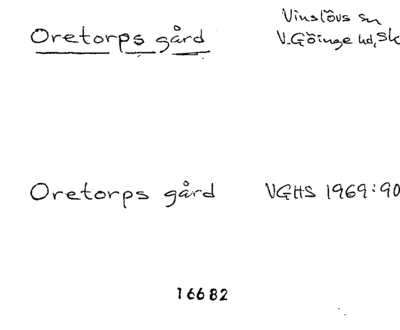 Oretorps gård
Vinslövs sn
V.Göinge hd, Sk
Oretorps gård VGHS 1969:90
16682